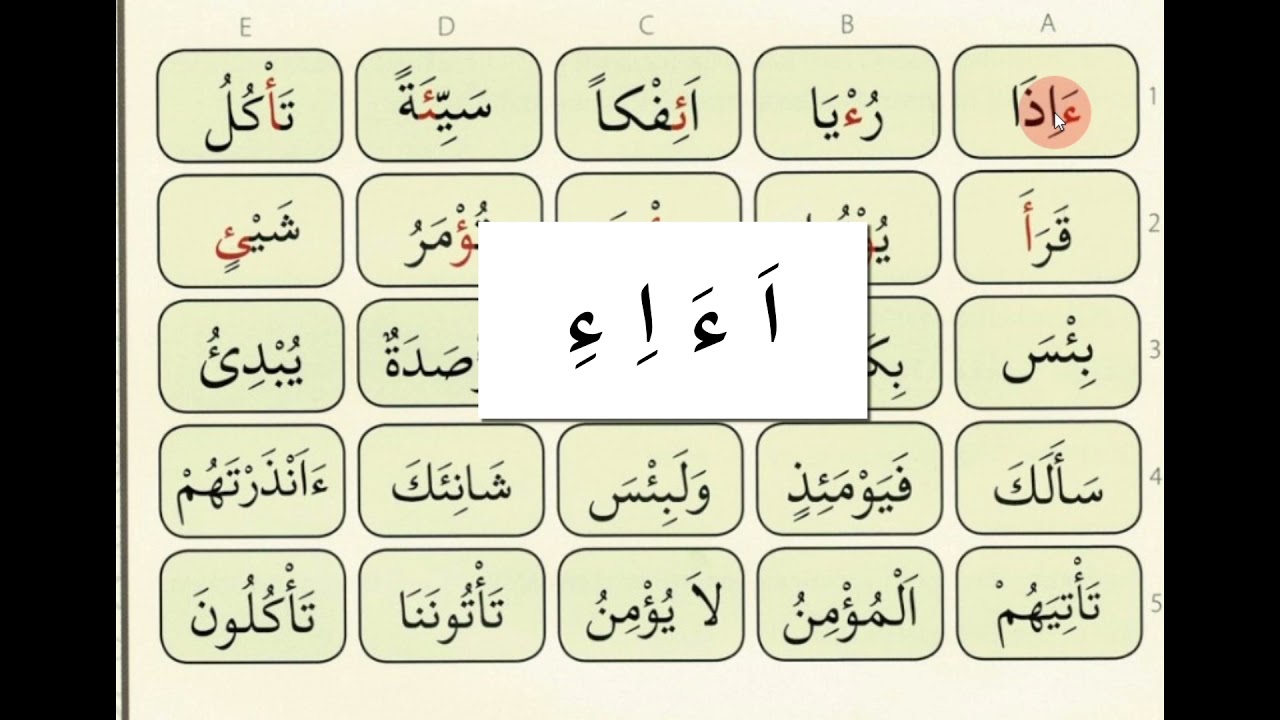 E D C B A
1 ءَاِذَا رُءْيَا اَئِفْكاً سَيِّئَةً تَأْكُلُ
2 قَرَأَ تُؤْمَرُ شَيْئٍ
اَ ءَ اِ ءِ
3 بِئْسَ يُبْدِئُ
4 سَأَلَكَ فَيَوْمَئِذٍ وَلَبِئْسَ شَانِئَكَ ءَاَنْذَرْتَهُمْ
5 تَأْتِيَهُمْ اَلْمُؤْمِنُ لاَ يُؤْمِنُ تَأْتُونَنَا تَأْكُلُونَ